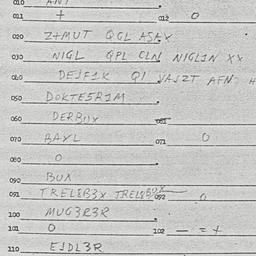 010 ANT
011 + 012 0
020 Z+MUT QGL ASAX
030 NIGL QPL CLN NIGL1N XX
040 DEJF1K QI VAJZT AFN H
050 DOKTE5R1M
060 DERBUX 061
070 BAXL 071 0
080 0
090 BUX
091 TREL8B3X TREL8BUX 092 0
100 MUG3R3R
101 0 102 - = +
110 EJDL3R